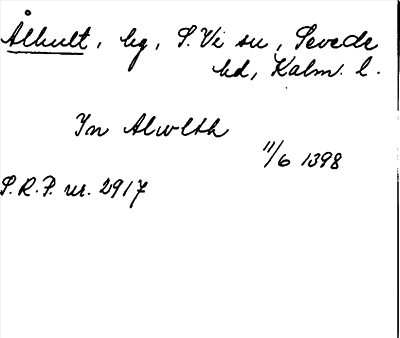 Ålhult, by, S. Vi sn, Sevede
hd, Kalm. l.
In Alwlth
11/6 1398
S.R.P. nr. 2917